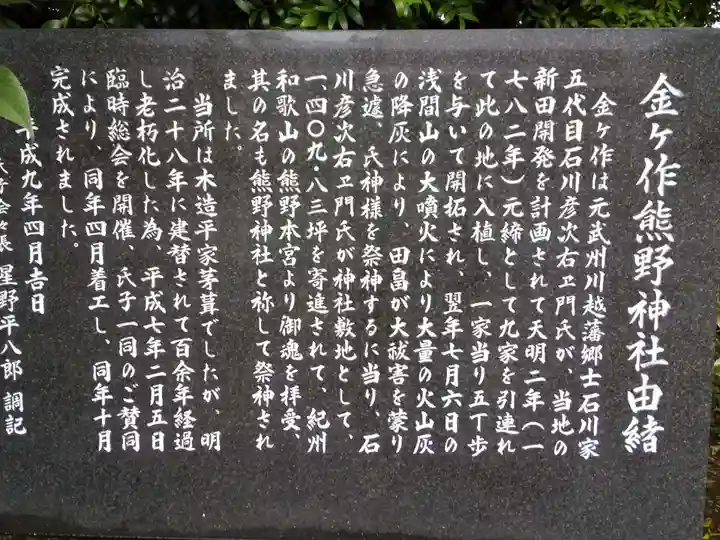 金ヶ作熊野神社由緒
金ヶ作は元武州川越藩郷士石川家
五代目石川彦次右ヱ門氏が、当地の
新田開発を計画されて天明二年(一
七八二年)元締として九家を引連れ
て此の地に入植し、一家当り五丁歩
を与いて開拓され、翌年七月六日の
浅間山の大噴火により大量の火山灰
の降灰により、田畠が大祓害を蒙り
急遽、氏神様を祭神するに当り、石
川彦次右ヱ門氏が神社敷地として、
一、四〇九・八三坪を寄進されて、紀州
和歌山の熊野本宮より御魂を拝受、
其の名も熊野神社と祢して祭神され
ました。
当所は木造平家茅葺でしたが、明
治二十八年に建替されて百余年経過
し老朽化した為、平成七年二月五日
臨時総会を開催、氏子一同のご賛同
により、同年四月着工し、同年十月
完成されました。
平成九年四月吉日
氏子会々長 星野平八郎 調記